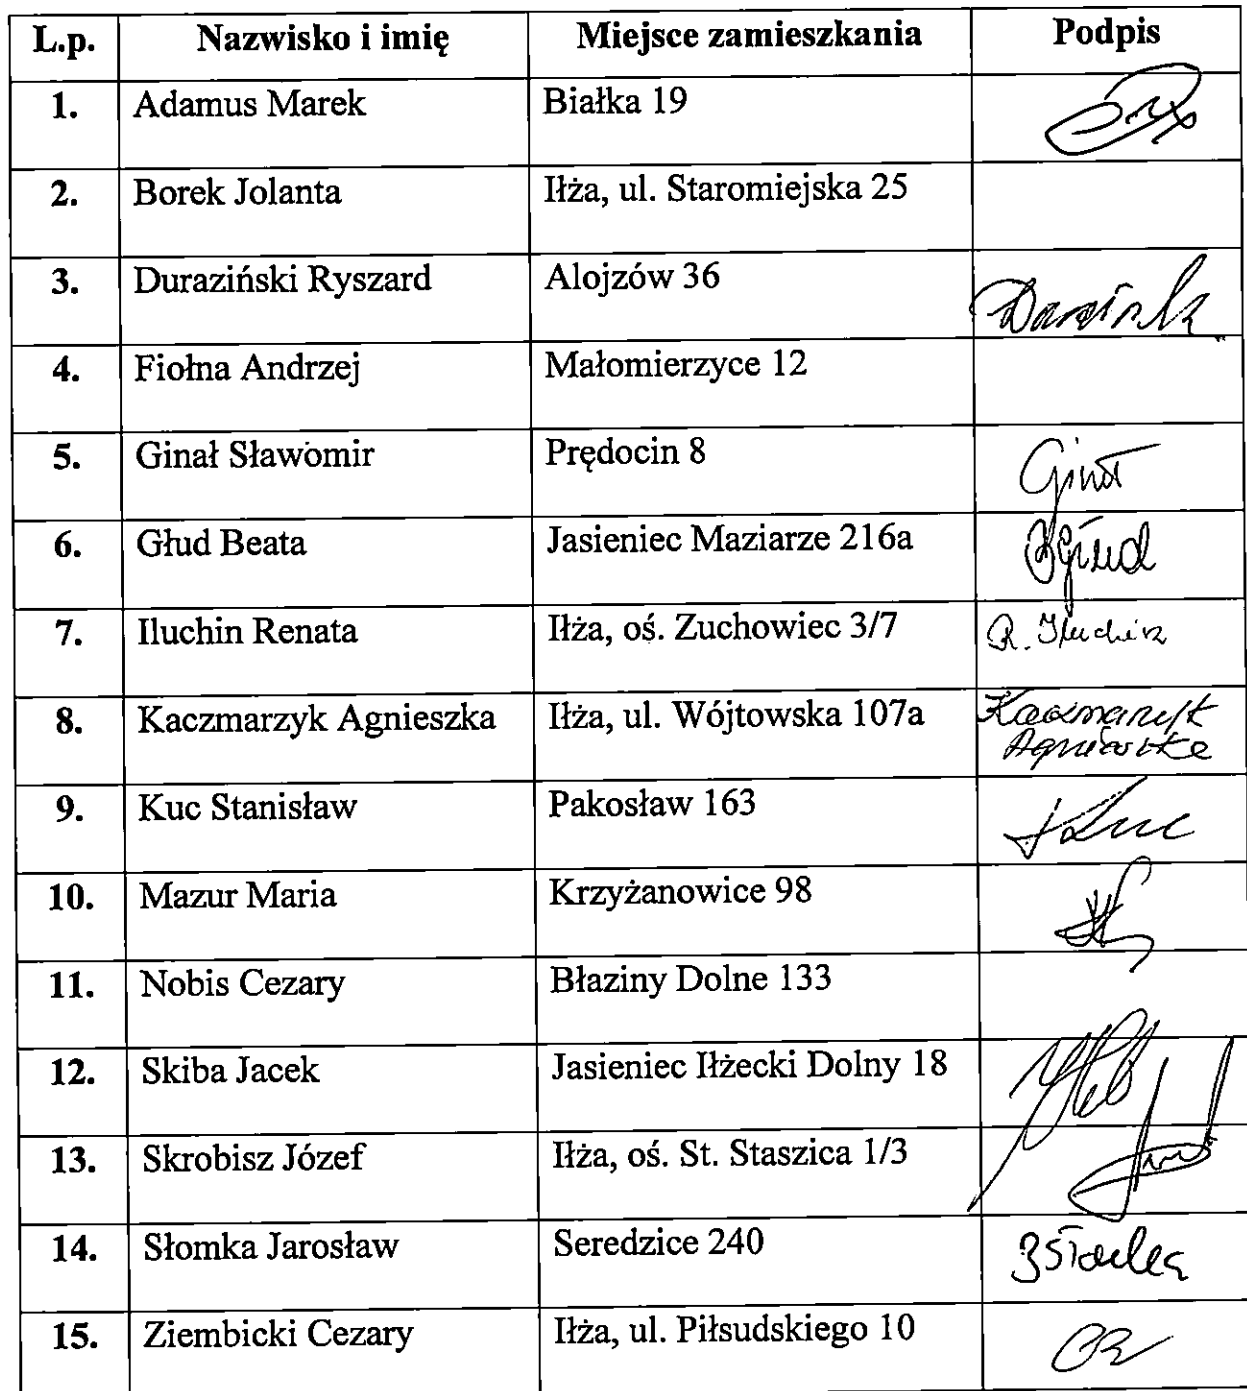 L.p. Nazwisko i imię Miejsce zamieszkania Podpis
1. Adamus Marek Białka 19
2. Borek Jolanta Iłża, ul. Staromiejska 25
3. Duraziński Ryszard Alojzów 36
4. Fiołna Andrzej Małomierzyce 12
5. Ginał Sławomir Prędocin 8 Ginał
6. Głud Beata Jasieniec Maziarze 216a BGłud
7. Iluchin Renata Iłża, oś. Zuchowiec 3/7 R. Iluchin
8. Kaczmarzyk Agnieszka Iłża, ul. Wójtowska 107a Kaczmarzyk
Agnieszka
9. Kuc Stanisław Pakosław 163 Kuc
10. Mazur Maria Krzyżanowice 98
11. Nobis Cezary Błaziny Dolne 133
12. Skiba Jacek Jasieniec Iłżecki Dolny 18
13. Skrobisz Józef Iłża, oś. St. Staszica 1/3
14. Słomka Jarosław Seredzice 240
15. Ziembicki Cezary Iłża, ul. Piłsudskiego 10